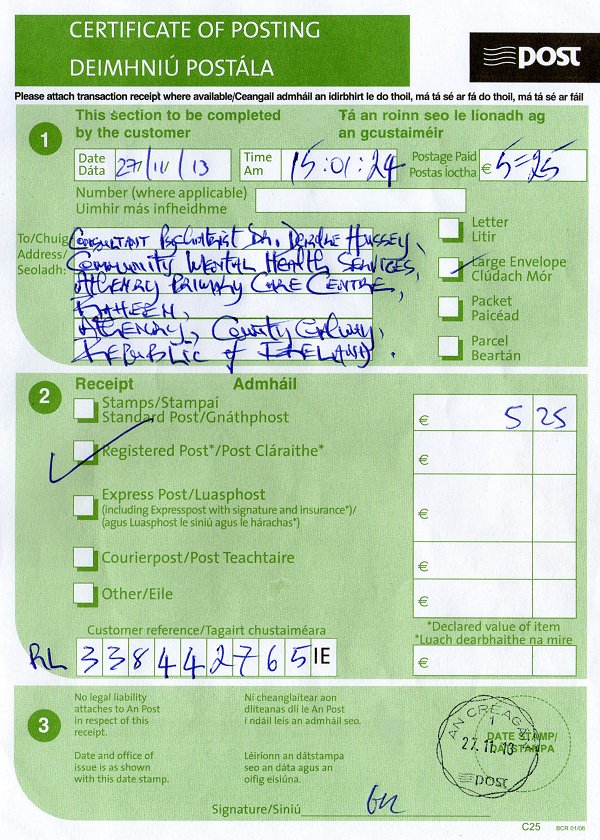 CERTIFICATE OF POSTING
DEIMHNIÚ POSTÁLA
post
Please attach transaction receipt where available/Ceangail admháil an idirbhirt le do thoil, má tá sé ar fá do thoil, má tá sé ar fáil
1
This section to be completed by the customer
Tá an roinn seo le líonadh ag an gcustaiméir
Date
Dáta
27/11/13
Time
Am
15:01:24
Postage Paid
Postas íoctha
€ 5=25
Number (where applicable)
Uimhir más infheidhme
To/Chuig
Address/
Seoladh:
Consultant Psychiatrist Dr. Deirdre Hussey,
Community Mental Health Services,
Athenry Primary Care Centre,
Raheen,
Athenry, County Galway,
Republic of Ireland.
Letter
Litir
Large Envelope
Clúdach Mór
Packet
Paicéad
Parcel
Beartán
2
Receipt Admháil
Stamps/Stampaí
Standard Post/Gnáthphost
€ 5 25
Registered Post*/Post Cláraithe*
€
Express Post/Luasphost
(including Expresspost with signature and insurance*)/
(agus Luasphost le siniú agus le hárachas*)
€
Courierpost/Post Teachtaire
€
Other/Eile
€
*Declared value of item
*Luach dearbhaithe na míre
€
Customer reference/Tagairt chustaiméara
RL 338442765 IE
3
No legal liability
attaches to An Post
in respect of this
receipt.
Ní cheanglaítear aon
dliteanas dlí le An Post
i ndáil leis an admháil seo.
Date and office of
issue is as shown
with this date stamp.
Léiríonn an dátstampa
seo an dáta agus an
oifig eisiúna.
DATE STAMP/
DÁTSTAMPA
AN CREAGÁN
1
27.11.13
post
Signature/Siniú
C25
BCR 01/06